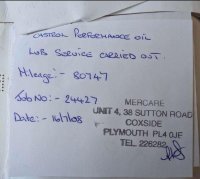 CASTROL PERFORMANCE OIL
LUB SERVICE CARRIED OUT.
Mileage:- 80747
Job No:- 24427
Date:- 16/7/08
MERCARE
UNIT 4, 38 SUTTON ROAD
COXSIDE
PLYMOUTH PL4 0JF
TEL. 226282